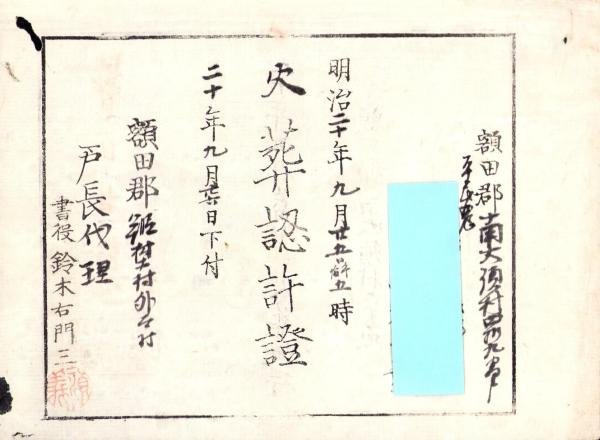 額田郡南大須村四十九番戸
平民
明治二十年九月廿五日午前五時
火葬認許證
二十年九月廿六日下付
額田郡桜井村外六ケ村
戸長代理
書役鈴木右門三